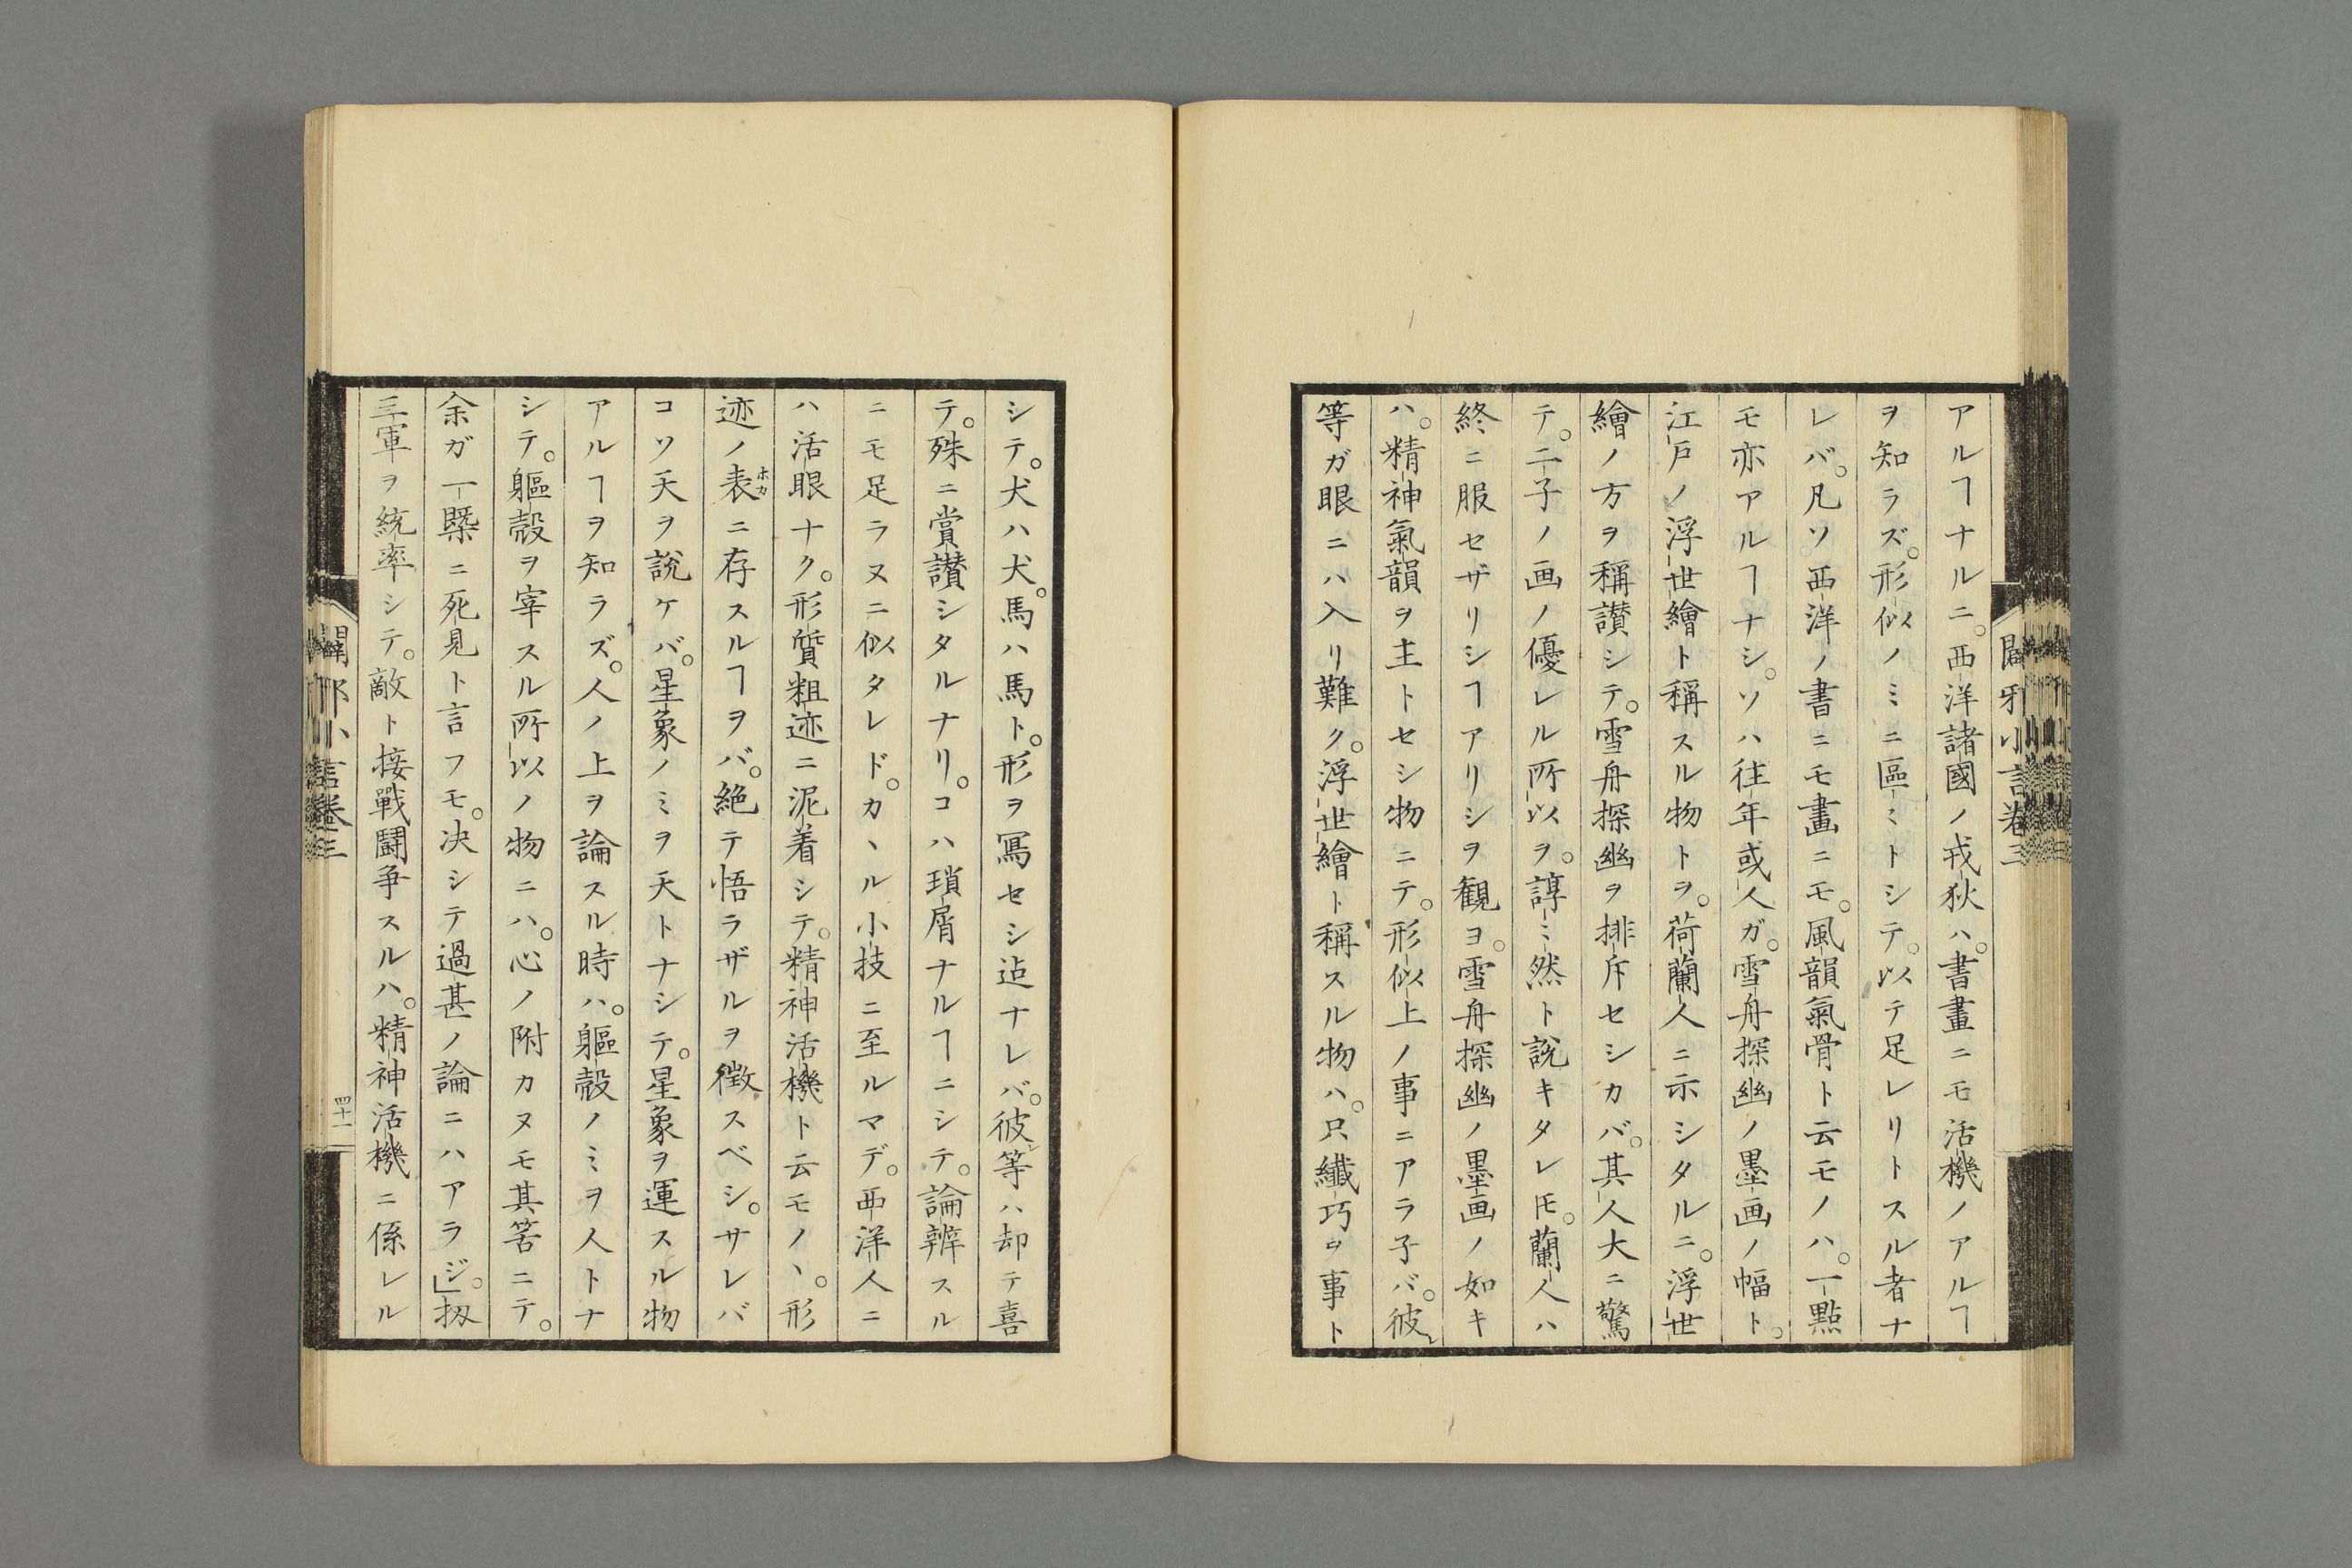 アルヿナルニ。西洋諸國ノ戎狄ハ。書畫ニモ活機ノアルヿ
ヲ知ラズ。形似ノミニ區ミトシテ。以テ足レリトスル者ナ
レバ。凡ソ西洋ノ書ニモ畫ニモ。風韻氣骨ト云モノハ。一點
モ亦アルヿナシ。ソハ往年或人ガ。雪舟探幽ノ墨画ノ幅ト。
江戸ノ浮世繪ト稱スル物トヲ。荷蘭人ニ示シタルニ。浮世
繪ノ方ヲ稱讃シテ。雪舟探幽ヲ排斥セシカバ。其人大ニ驚
テ。二子ノ画ノ優レル所以ヲ。諄ミ然ト說キタレ𪜈。蘭人ハ
終ニ服セザリシヿアリシヲ観ヨ。雪舟探幽ノ墨画ノ如キ
ハ。精神氣韻ヲ主トセシ物ニテ。形似上ノ事ニアラ子バ。彼
等ガ眼ニハ入リ難ク。浮世繪ト稱スル物ハ。只纎巧ヲ事ト
闢邪小言卷三
シテ。犬ハ犬。馬ハ馬ト。形ヲ寫セシ迠ナレバ。彼等ハ却テ喜
テ。殊ニ賞讃シタルナリ。コハ瑣屑ナルヿニシテ。論辨スル
ニモ足ラヌニ似タレド。カヽル小技ニ至ルマデ。西洋人ニ
ハ活眼ナク。形質粗迹ニ泥着シテ。精神活機ト云モノヽ。形
迹ノ表ホカニ存スルヿヲバ。絶テ悟ラザルヲ徴スベシ。サレバ
コソ天ヲ說ケバ。星象ノミヲ天トナシテ。星象ヲ運スル物
アルヿヲ知ラズ。人ノ上ヲ論スル時ハ。軀殻ノミヲ人トナ
シテ。軀殻ヲ宰スル所以ノ物ニハ。心ノ附カヌモ其筈ニテ。
余ガ一槩ニ死見ト言フモ。决シテ過甚ノ論ニハアラジ。」扨
三軍ヲ統率シテ。敵ト接戰鬪争スルハ。精神活機ニ係レル
闢邪小言卷三
四十一